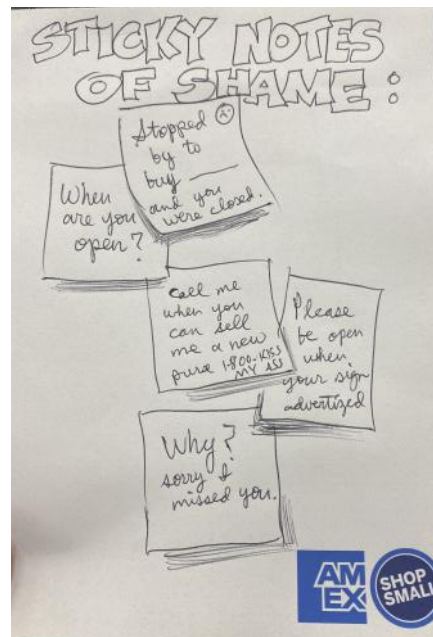 STICKY NOTES
OF SHAME:
Stopped
by to
buy ____
and you
were closed.
When
are you
open?
Call me
when you
can sell
me a new
purse 1-800-KISS
MY ASS
Please
be open
when
your sign
advertized
Why?
sorry I
missed you.
AM
EX
SHOP
SMALL